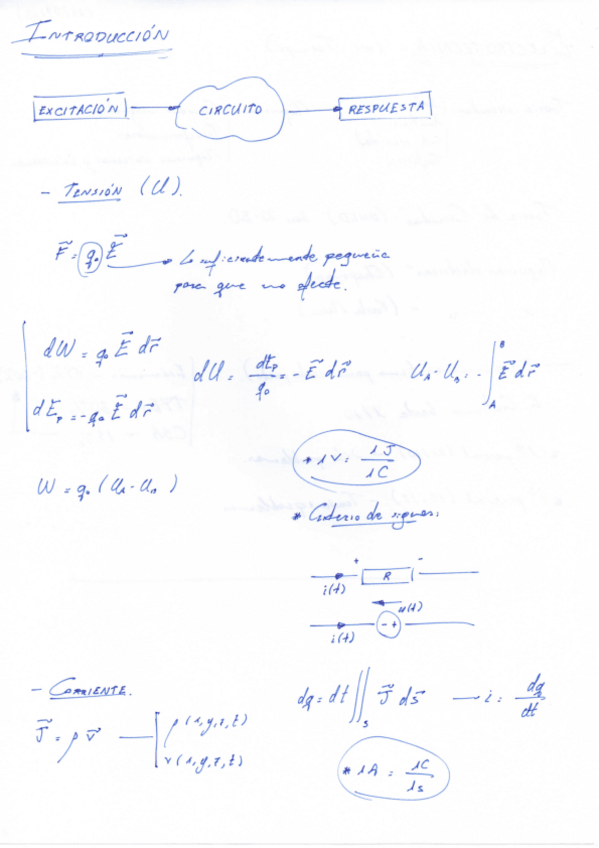 INTRODUCCIÓN
EXCITACIÓN → CIRCUITO → RESPUESTA
- TENSIÓN (U).
F⃗ = q₀ E⃗ → Lo suficientemente pequeña
para que no afecte.
dW = q₀ E⃗ dr⃗
dEₚ = -q₀ E⃗ dr⃗
dU = dEₚ/q₀ = - E⃗ dr⃗
U_A - U_B = - ∫_A^B E⃗ dr⃗
* 1V = 1J/1C
W = q₀ (U_A - U_B)
* Criterio de signos:
+ R -
i(t)
u(t)
- +
i(t)
- CORRIENTE.
J⃗ = ρ v⃗ — ρ(x,y,z,t)
v(x,y,z,t)
dq = dt ∬_S J⃗ ds⃗ — i = dq/dt
* 1A = 1C/1s